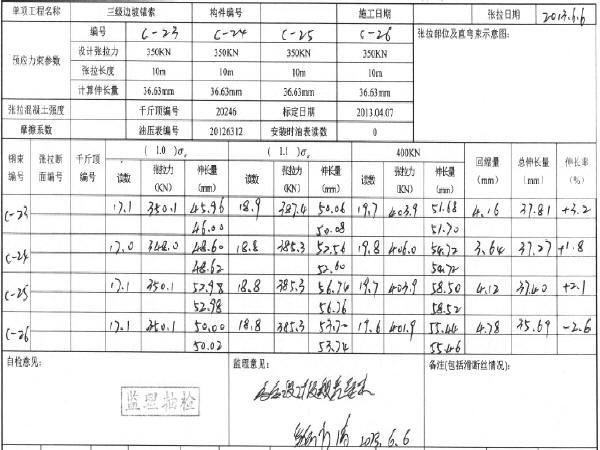 单项工程名称 三级边坡锚索 构件编号 施工日期 张拉日期 2013.6.6
预应力束参数 编号 C-23 C-24 C-25 C-26 张拉部位及直弯束示意图:
设计张拉力 350KN 350KN 350KN 350KN
张拉长度 10m 10m 10m 10m
计算伸长量 36.63mm 36.63mm 36.63mm 36.63mm
张拉混凝土强度 千斤顶编号 20246 标定日期 2013.04.07
摩擦系数 油压表编号 20126312 安装时油表读数 0
钢束编号 张拉断面编号 千斤顶编号 (1.0)σ (1.1)σ 400KN 回缩量(mm) 总伸长量(mm) 伸长率(%)
读数 张拉力(KN) 伸长量(mm) 读数 张拉力(KN) 伸长量(mm) 读数 张拉力(KN) 伸长量(mm)
C-23 17.1 350.1 45.96 18.9 387.4 50.06 19.7 403.9 51.68 4.16 37.81 +3.2
46.00 50.08 51.70
C-24 17.0 348.0 48.60 18.8 385.3 52.56 19.8 406.0 54.72 3.64 37.27 +1.8
48.62 52.60 54.72
C-25 17.1 350.1 52.98 18.8 385.3 56.74 19.7 403.9 58.50 4.12 37.40 +2.1
52.98 56.76 58.52
C-26 17.1 350.1 50.00 18.8 385.3 53.70 19.6 401.9 55.44 4.78 35.69 -2.6
50.02 53.74 55.46
自检意见: 监理意见: 备注(包括滑断丝情况):
监理抽检
2013.6.6